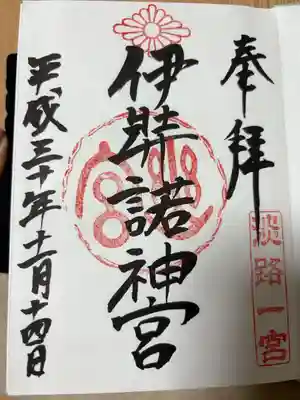 奉拝
淡路一宮
伊弉諾神宮
平成三十年十一月十四日